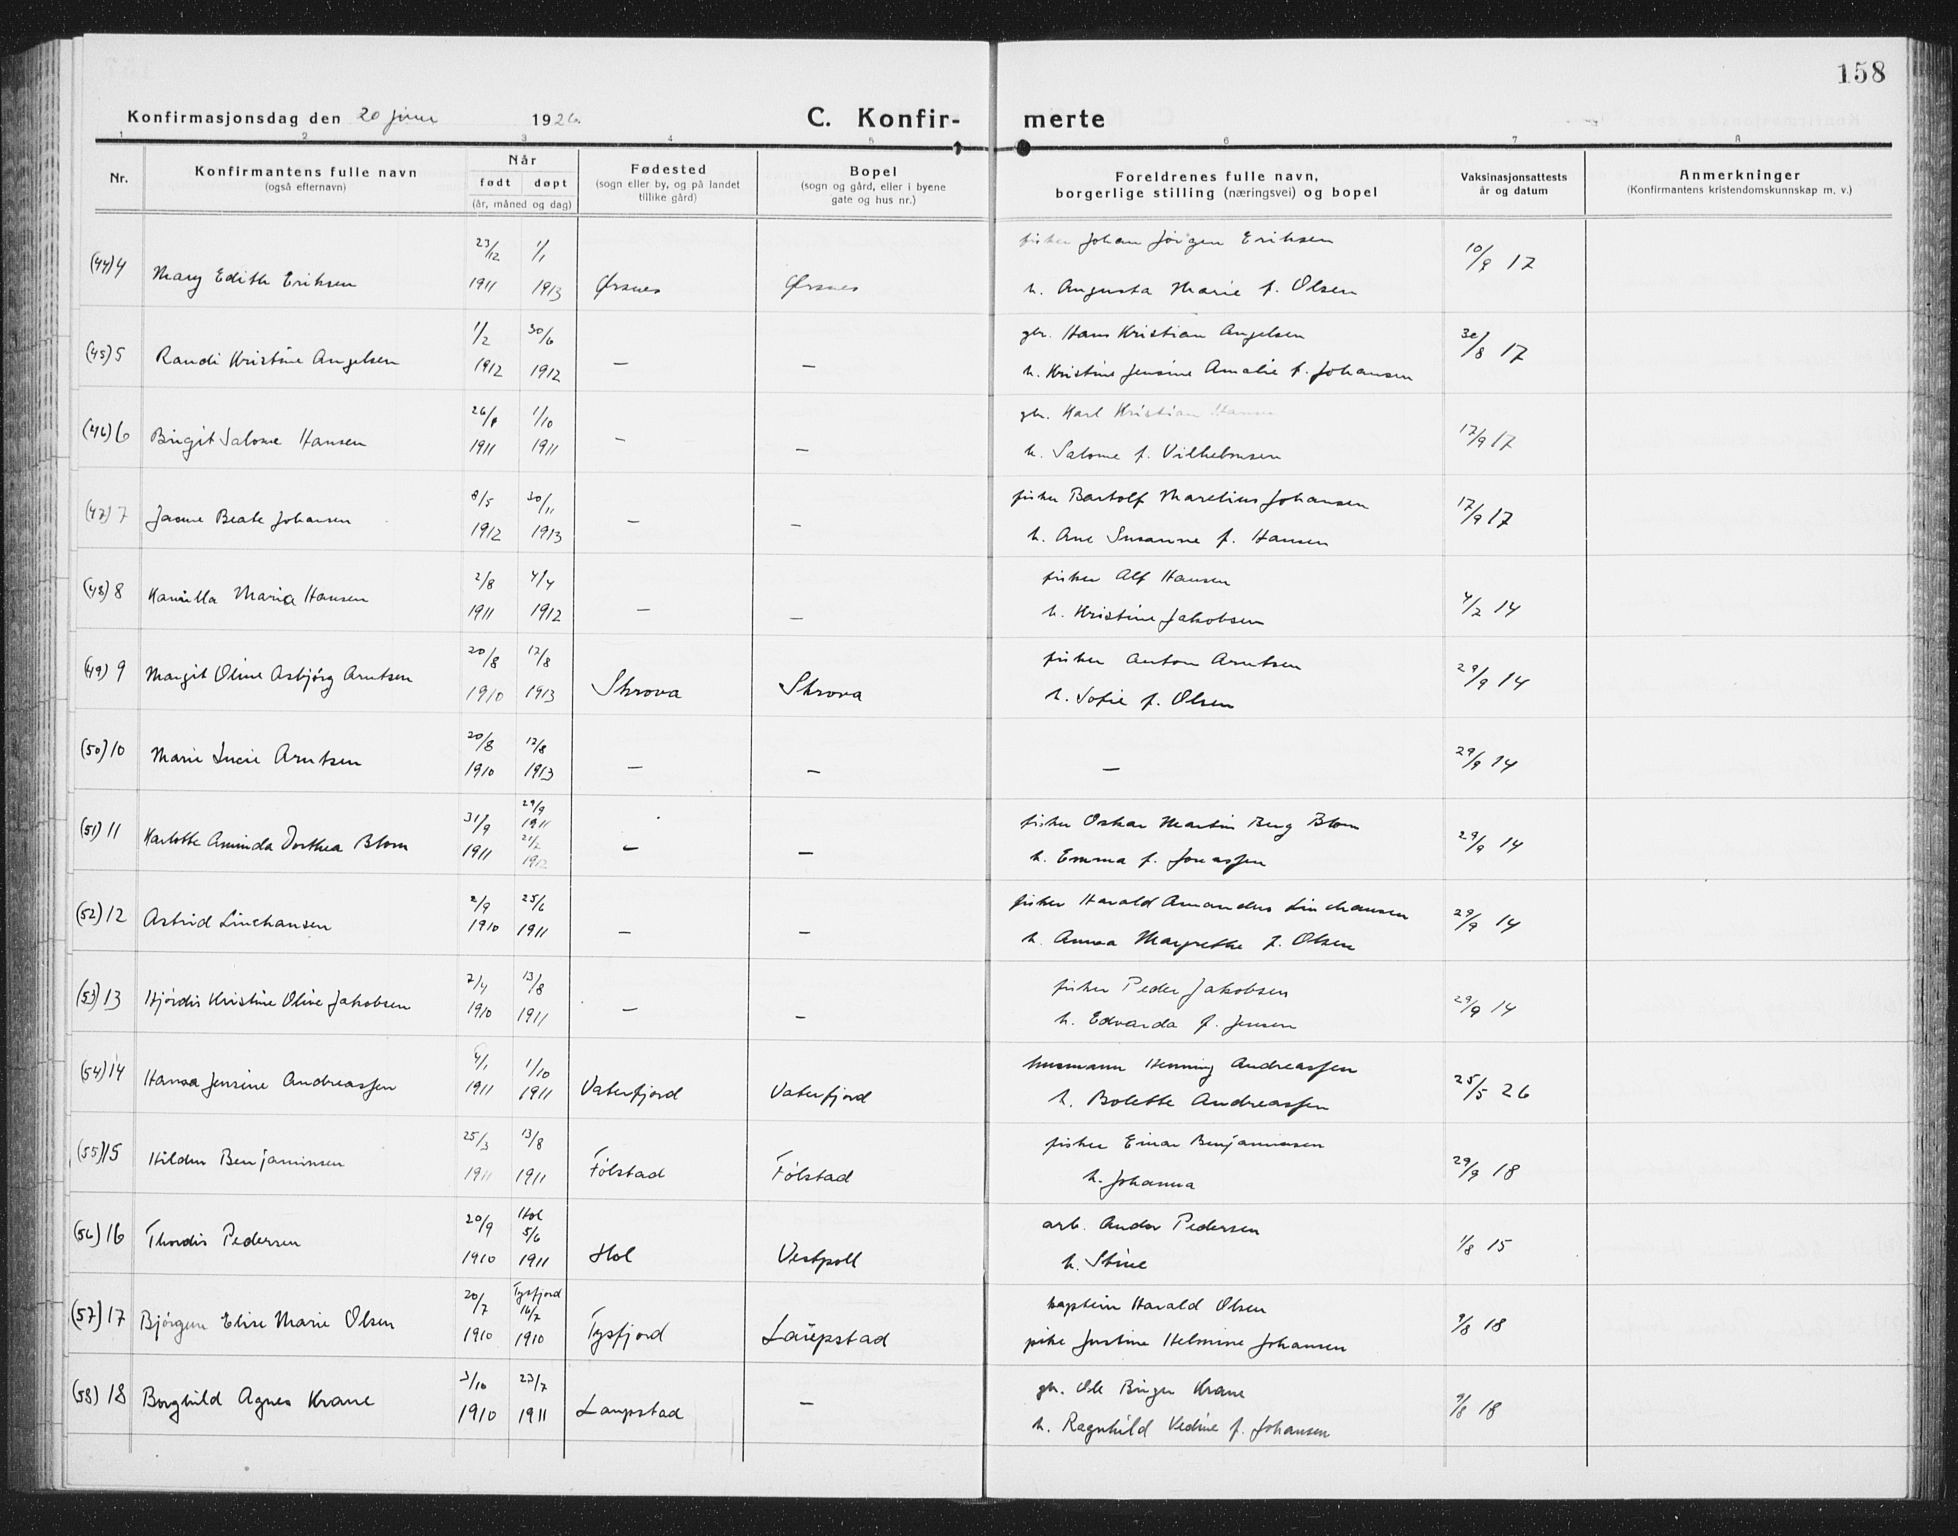 158
Konfirmasjonsdag den 20 juni 1926. C. Konfir- merte
1 2 3 4 5 6 7 8
Nr. Konfirmantens fulle navn (også efternavn) Når født døpt (år, måned og dag) Fødested (sogn eller by, og på landet tillike gård) Bopel (sogn og gård, eller i byene gate og hus nr.) Foreldrenes fulle navn, borgerlige stilling (næringsvei) og bopel Vaksinasjonsattests år og datum Anmerkninger (Konfirmantens kristendomskunnskap m. v.)
(44) 4 Mary Edith Eriksen 23/12 1911 1/1 1913 Ørsnes Ørsnes fisker Johan Jørgen Eriksen 10/9 17
h. Augusta Marie f. Olsen
(45) 5 Randi Kristine Angelsen 1/2 1912 30/6 1912 — — gbr. Hans Kristian Angelsen 30/8 17
h. Kristine Jensine Amalie f. Johansen
(46) 6 Birgit Salome Hansen 1911 1/10 1911 — — gbr. Karl Kristian Hansen 17/9 17
h. Salome f. Vilhelmsen
(47) 7 Beate Johansen 8/5 1912 30/11 1913 — — fisker Bartolf Marelius Johansen 17/9 17
h. Ane Susanne f. Hansen
(48) 8 Kamilla Maria Hansen 2/8 1911 4/4 1912 — — fisker Alf Hansen 4/2 14
h. Kristine Jakobsen
(49) 9 Margit Oline Asbjørg Arntsen 20/8 1910 12/8 1913 Skrova Skrova fisker Anton Arntsen 29/9 14
h. Sofie f. Olsen
(50) 10 Marie Lucie Arntsen 20/8 1910 12/8 1913 — — — 29/9 14
(51) 11 Karlotte Aminda Dorthea Blom 31/9 1911 29/9 1911 21/2 1912 — — fisker Oskar Martin Berg Blom 29/9 14
h. Emma f. Jonassen
(52) 12 Astrid Linehansen 2/9 1910 25/6 1911 — — fisker Harald Amandus Linehansen 29/9 14
h. Anna Margrethe f. Olsen
(53) 13 Hjördis Kristine Olive Jakobsen 2/4 1910 13/8 1911 — — fisker Peder Jakobsen 29/9 14
h. Edvarda f. Jensen
(54) 14 Hansa Jensine Andreassen 4/1 1911 1/10 1911 Vaterfjord Vaterfjord husmann Henning Andreassen 25/5 26
h. Bolette Andreassen
(55) 15 Hildur Benjaminsen 25/3 1911 13/8 1911 Følstad Følstad fisker Einar Benjaminsen 29/9 18
h. Johanna
(56) 16 Thordis Pedersen 20/9 1910 Hol 5/6 1911 Hol Vestpoll arb. Andor Pedersen 1/8 15
h. Stine
(57) 17 Bjørgun Elise Marie Olsen 20/7 1910 Tysfjord 16/7 1910 Tysfjord Laupstad kaptein Harald Olsen 9/8 18
pike Justine Helmine Johansen
(58) 18 Borghild Agnes Krane 3/10 1910 23/7 1911 Laupstad — gbr. Ole Birger Krane 9/8 18
h. Ragnhild Vedine f. Johansen